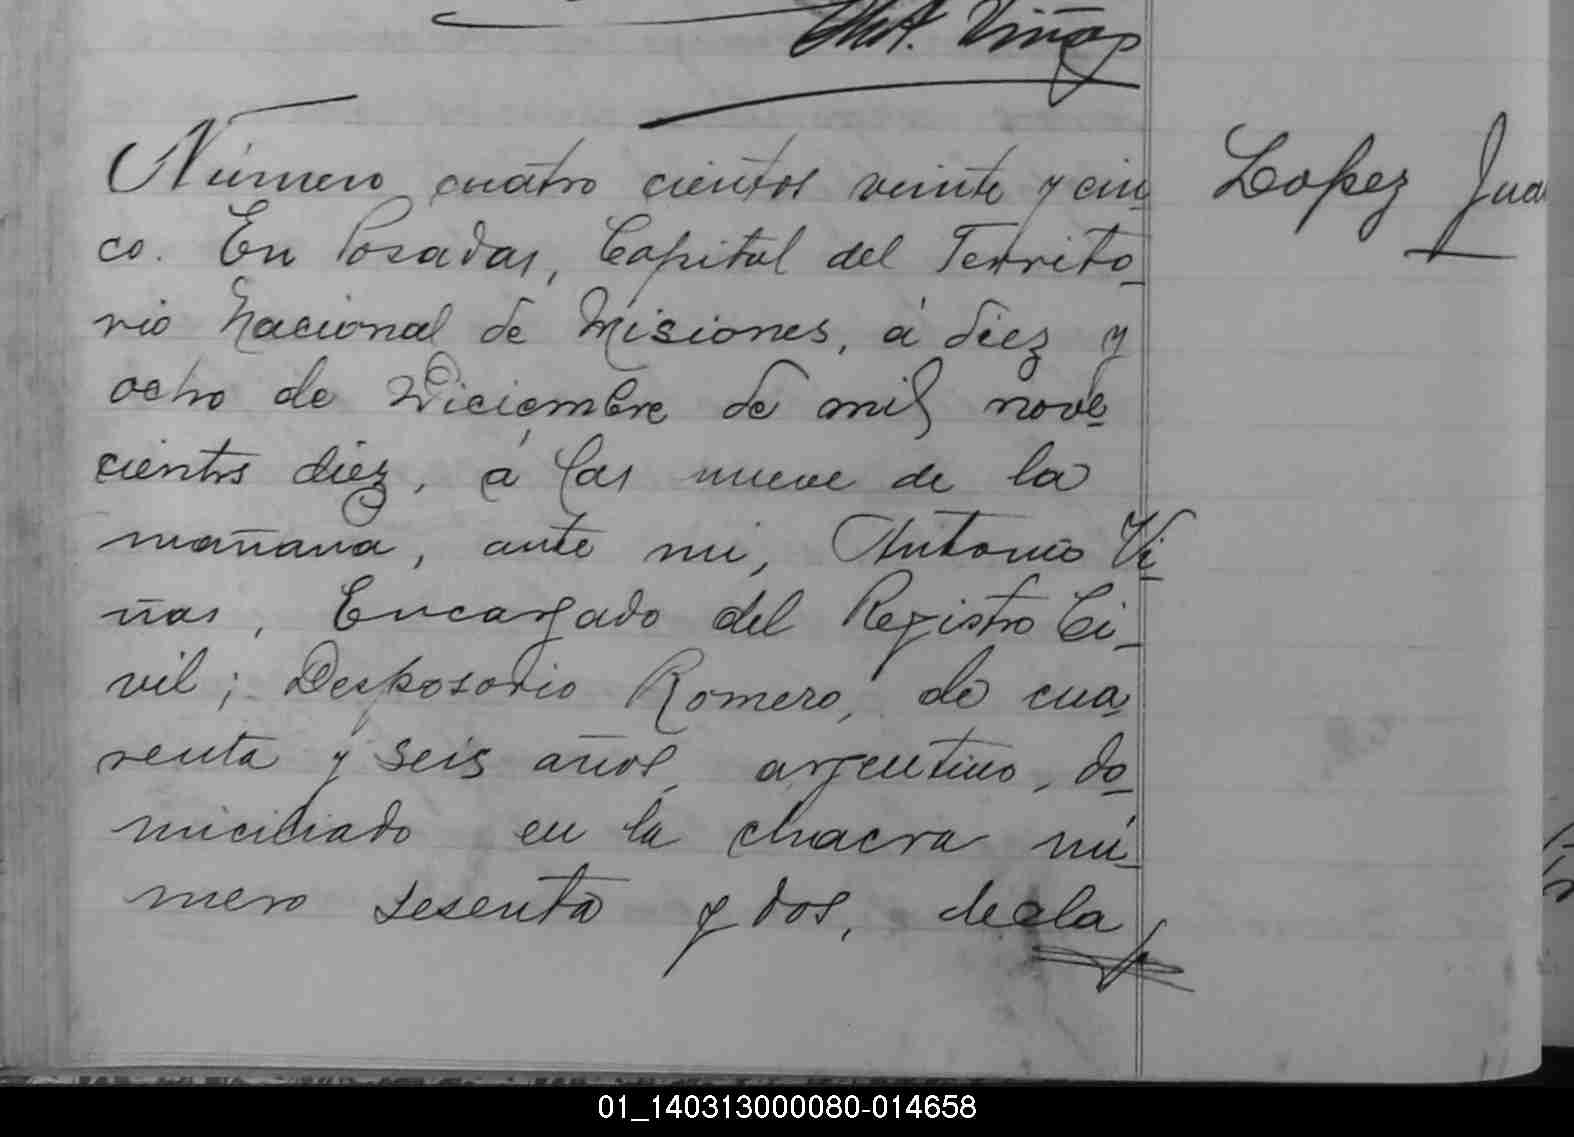 Ant. Viñas
Número cuatro cientos veinte y cin
co. En Posadas, Capital del Territo-
rio Nacional de Misiones, á diez y
ocho de Diciembre de mil nove-
cientos diez, á las nueve de la
mañana, ante mi, Antonio Vi-
ñas, Encargado del Registro Ci-
vil; Desposorio Romero, de cua-
renta y seis años, argentino, do-
miciliado en la chacra nú-
mero sesenta y dos, decla
Lopez Jua
01_140313000080-014658